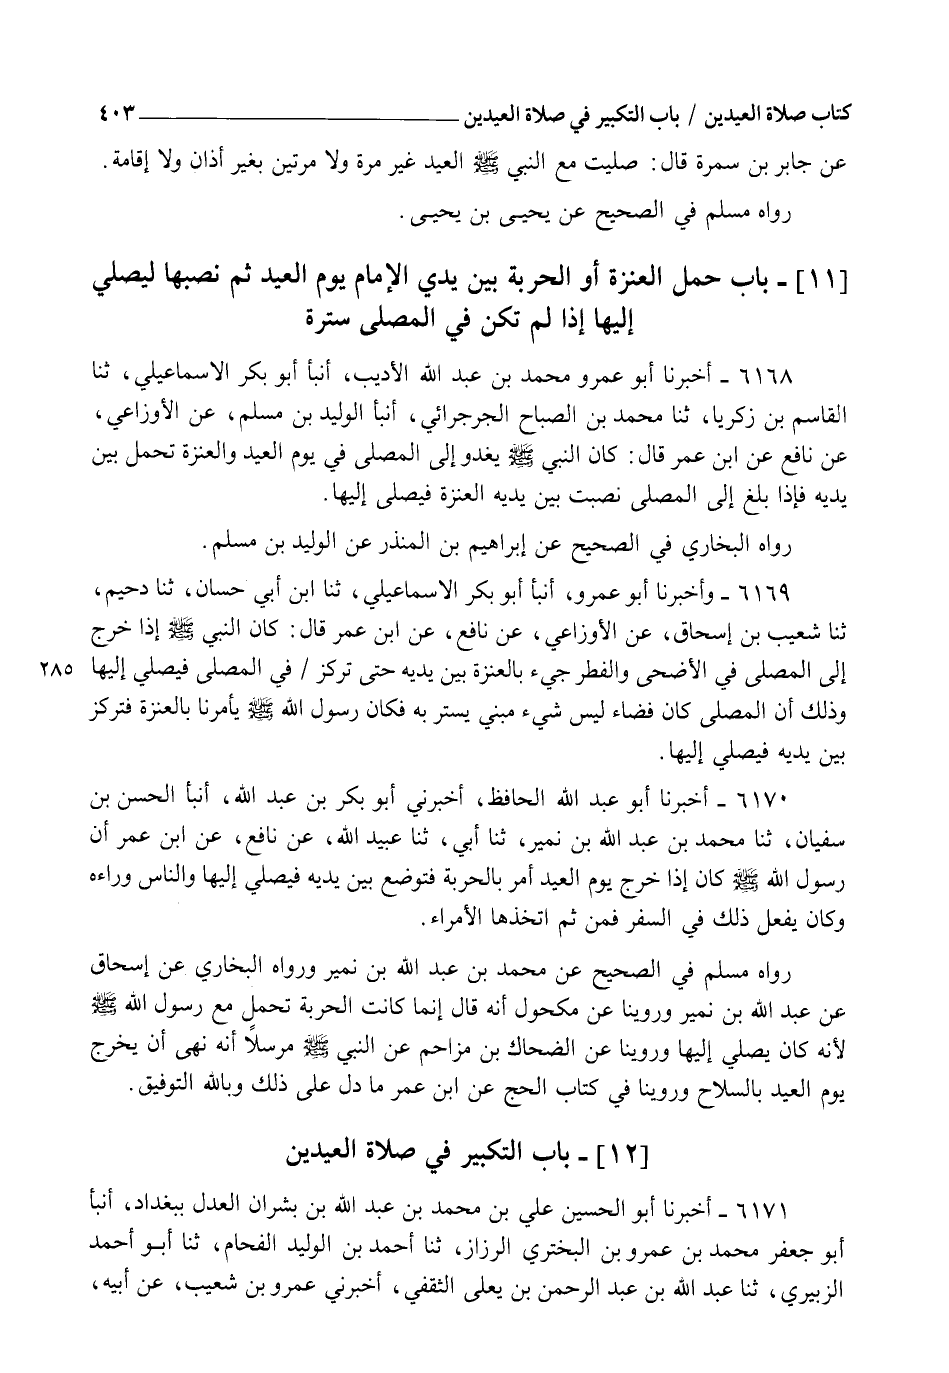 كتاب صلاة العيدين / باب التكبير في صلاة العيدين ٤٠٣
عن جابر بن سمرة قال: صليت مع النبي ﷺ العيد غير مرة ولا مرتين بغير أذان ولا إقامة.
رواه مسلم في الصحيح عن يحيى بن يحيى.
[١١] ـ باب حمل العنزة أو الحربة بين يدي الإمام يوم العيد ثم نصبها ليصلي
إليها إذا لم تكن في المصلى سترة
٦١٦٨ ـ أخبرنا أبو عمرو محمد بن عبد الله الأديب، أنبأ أبو بكر الاسماعيلي، ثنا
القاسم بن زكريا، ثنا محمد بن الصباح الجرجرائي، أنبأ الوليد بن مسلم، عن الأوزاعي،
عن نافع عن ابن عمر قال: كان النبي ﷺ يغدو إلى المصلى في يوم العيد والعنزة تحمل بين
يديه فإذا بلغ إلى المصلى نصبت بين يديه العنزة فيصلى إليها.
رواه البخاري في الصحيح عن إبراهيم بن المنذر عن الوليد بن مسلم.
٦١٦٩ ـ وأخبرنا أبو عمرو، أنبأ أبو بكر الاسماعيلي، ثنا ابن أبي حسان، ثنا دحيم،
ثنا شعيب بن إسحاق، عن الأوزاعي، عن نافع، عن ابن عمر قال: كان النبي ﷺ إذا خرج
إلى المصلى في الأضحى والفطر جيء بالعنزة بين يديه حتى تركز / في المصلى فيصلي إليها ٢٨٥
وذلك أن المصلى كان فضاء ليس شيء مبني يستر به فكان رسول الله ﷺ يأمرنا بالعنزة فتركز
بين يديه فيصلي إليها.
٦١٧٠ ـ أخبرنا أبو عبد الله الحافظ، أخبرني أبو بكر بن عبد الله، أنبأ الحسن بن
سفيان، ثنا محمد بن عبد الله بن نمير، ثنا أبي، ثنا عبيد الله، عن نافع، عن ابن عمر أن
رسول الله ﷺ كان إذا خرج يوم العيد أمر بالحربة فتوضع بين يديه فيصلي إليها والناس وراءه
وكان يفعل ذلك في السفر فمن ثم اتخذها الأمراء.
رواه مسلم في الصحيح عن محمد بن عبد الله بن نمير ورواه البخاري عن إسحاق
عن عبد الله بن نمير وروينا عن مكحول أنه قال إنما كانت الحربة تحمل مع رسول الله ﷺ
لأنه كان يصلي إليها وروينا عن الضحاك بن مزاحم عن النبي ﷺ مرسلاً أنه نهى أن يخرج
يوم العيد بالسلاح وروينا في كتاب الحج عن ابن عمر ما دل على ذلك وبالله التوفيق.
[١٢] ـ باب التكبير في صلاة العيدين
٦١٧١ ـ أخبرنا أبو الحسين علي بن محمد بن عبد الله بن بشران العدل ببغداد، أنبأ
أبو جعفر محمد بن عمرو بن البختري الرزاز، ثنا أحمد بن الوليد الفحام، ثنا أبو أحمد
الزبيري، ثنا عبد الله بن عبد الرحمن بن يعلى الثقفي، أخبرني عمرو بن شعيب، عن أبيه،